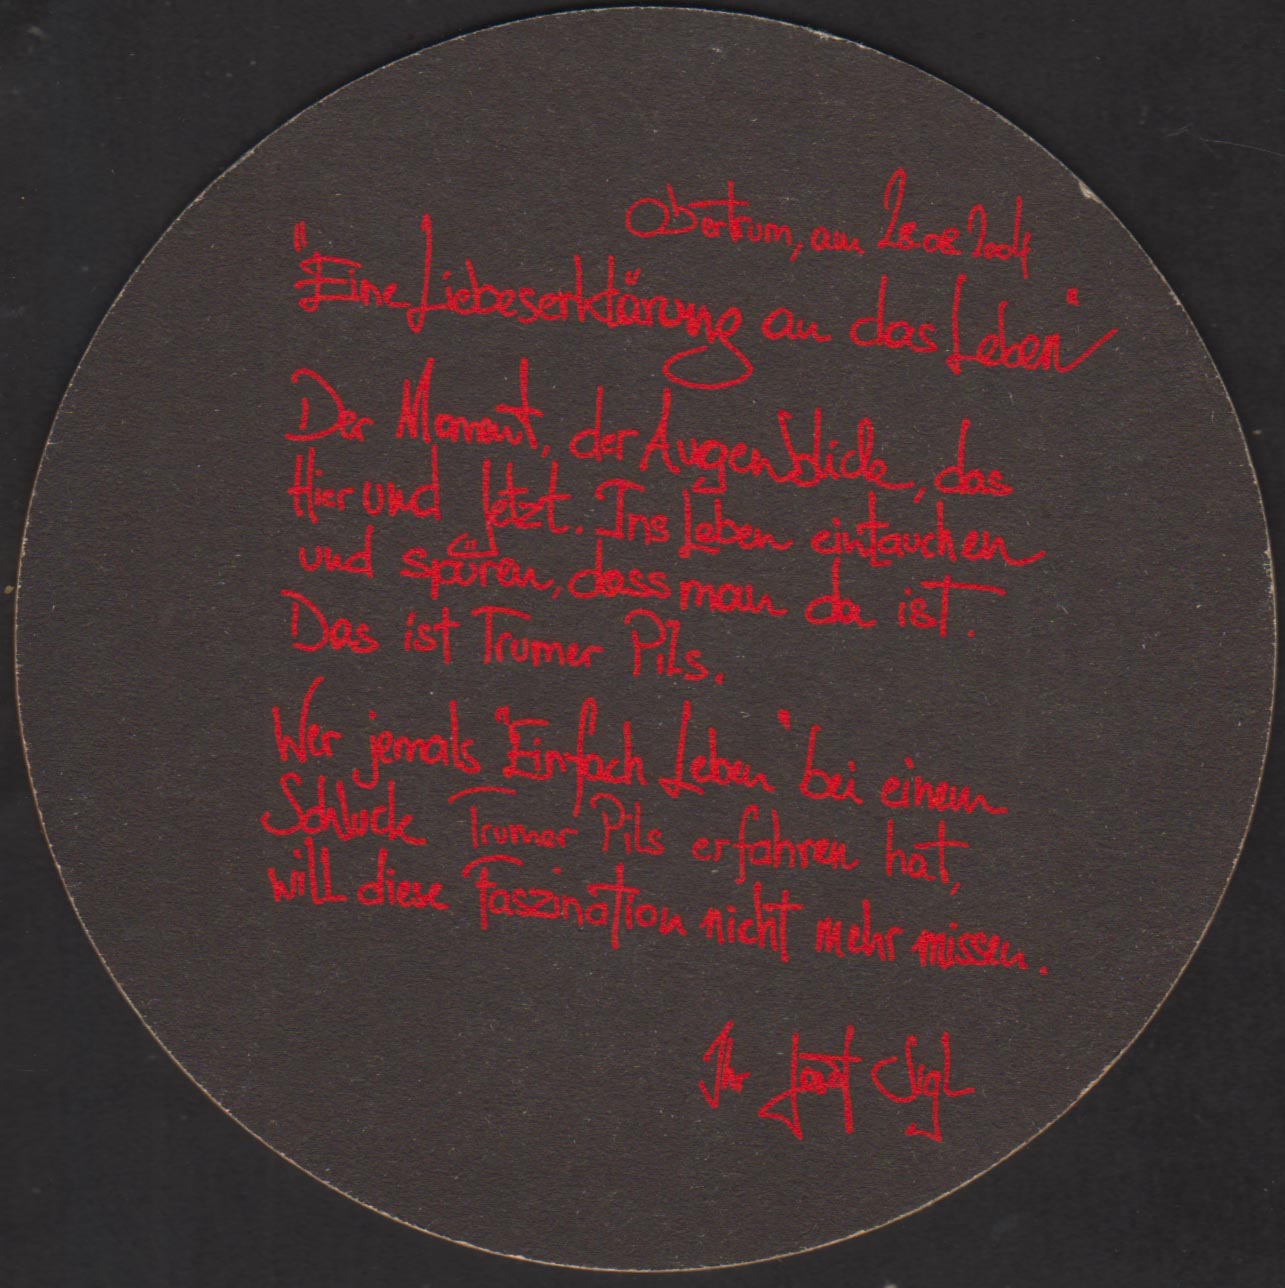 Obertrum, am 28.08.2004
"Eine Liebeserklärung an das Leben"
Der Moment, der Augenblick, das
Hier und Jetzt. Ins Leben eintauchen
und spüren, dass man da ist.
Das ist Trumer Pils.
Wer jemals "Einfach Leben" bei einem
Schluck Trumer Pils erfahren hat,
will diese Faszination nicht mehr missen.
Ihr Josef Sigl